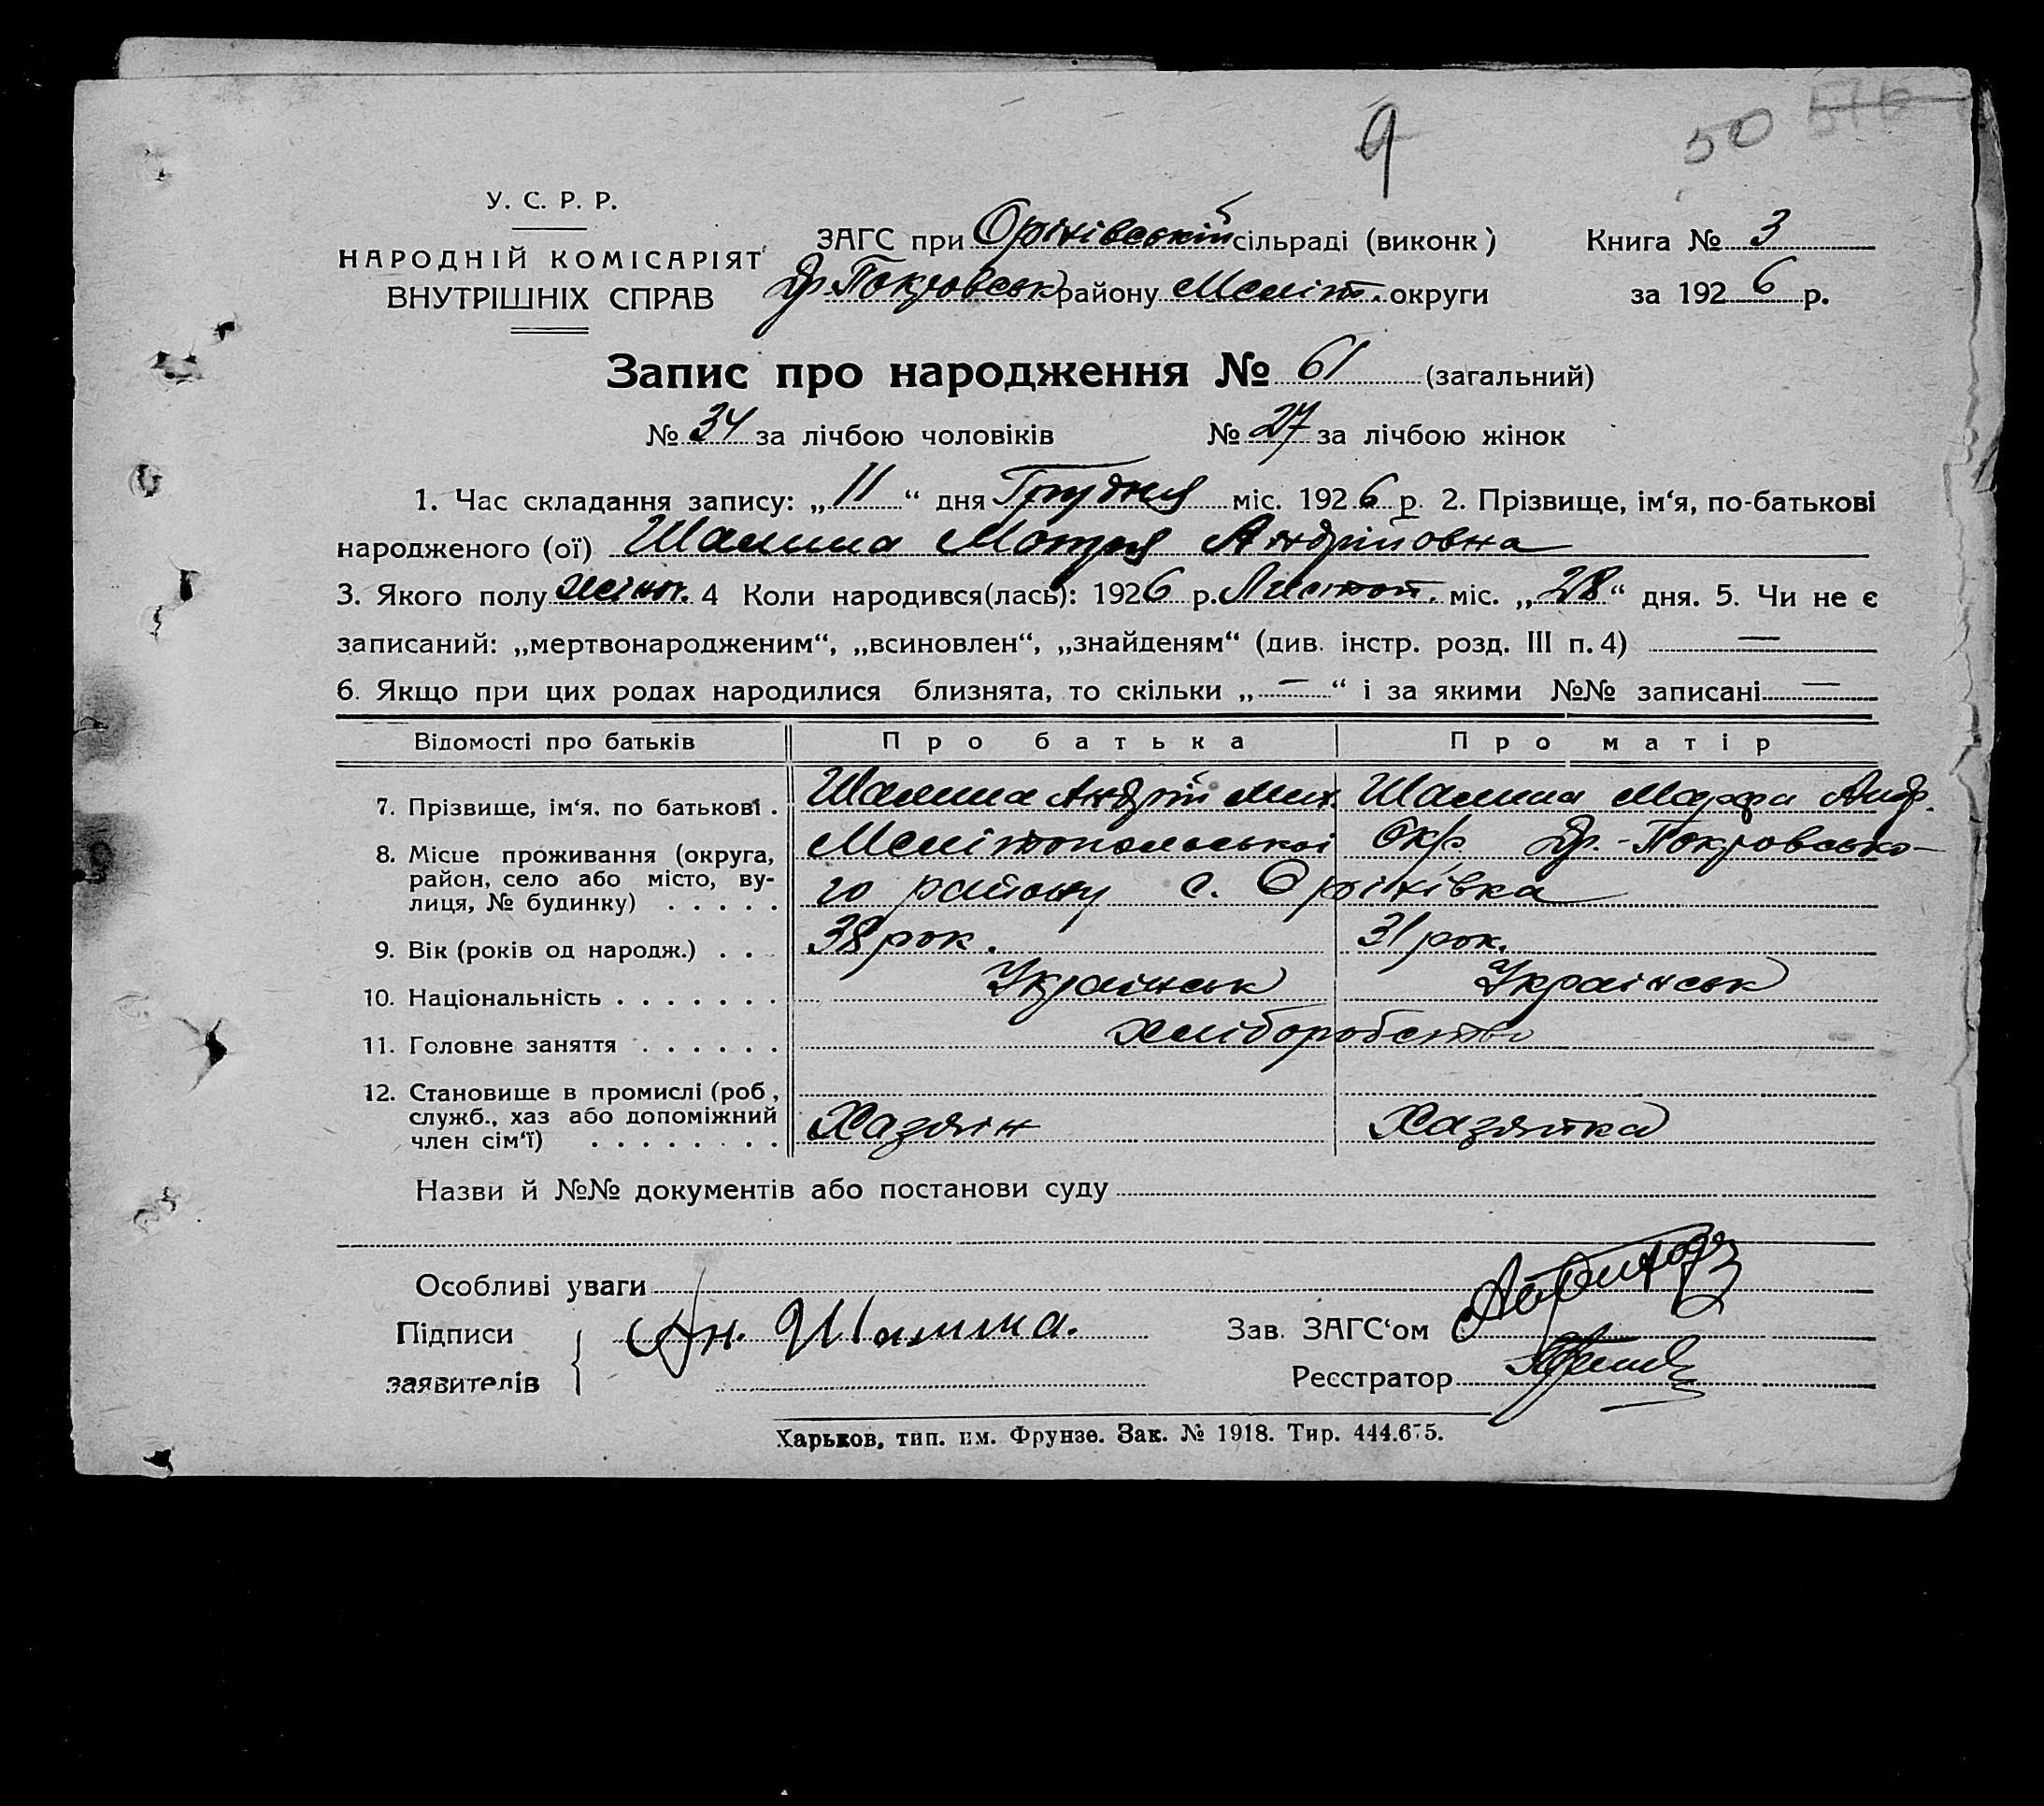 9
50 516
У. С. Р. Р.
НАРОДНІЙ КОМІСАРІЯТ
ВНУТРІШНІХ СПРАВ
ЗАГС при Оріхівській сільраді (виконк) Книга № 3
Др. Покровськ району Меліт. округи за 1926 р.
Запис про народження № 61 (загальний)
№ 34 за лічбою чоловіків № 27 за лічбою жінок
1. Час складання запису: „11“ дня Грудня міс. 1926 р. 2. Прізвище, ім‘я, по-батькові
народженого (ої) Шамша Мотря Андрійовна
3. Якого полу жіноч. 4 Коли народився(лась): 1926 р. Листоп. міс. „28“ дня. 5. Чи не є
записаний: „мертвонародженим“, „всиновлен“, „знайденям“ (див. інстр. розд. III п. 4) —
6. Якщо при цих родах народилися близнята, то скільки „—“ і за якими №№ записані —
Відомості про батьків Про батька Про матір
7. Прізвище, ім‘я, по батькові . Шамша Андрій Мих. Шамша Марфа Андр.
8. Місце проживання (округа, Мелітопольської Окр. Др.-Покровсько-
район, село або місто, ву- го району с. Оріхівка
лиця, № будинку) . . . . .
9. Вік (років од народж.) . . . 38 рок. 31 рок.
10. Національність . . . . . . . Українськ Українськ
11. Головне заняття . . . . . . Хліборобство
12. Становище в промислі (роб,
служб., хаз або допоміжний Хазяїн Хазяйка
член сім‘ї) . . . . . . . .
Назви й №№ документів або постанови суду
Особливі уваги
Підписи Ан. Шамша. Зав. ЗАГС‘ом
заявителів Реєстратор
Харьков, тип. им. Фрунзе. Зак. № 1918. Тир. 444.675.